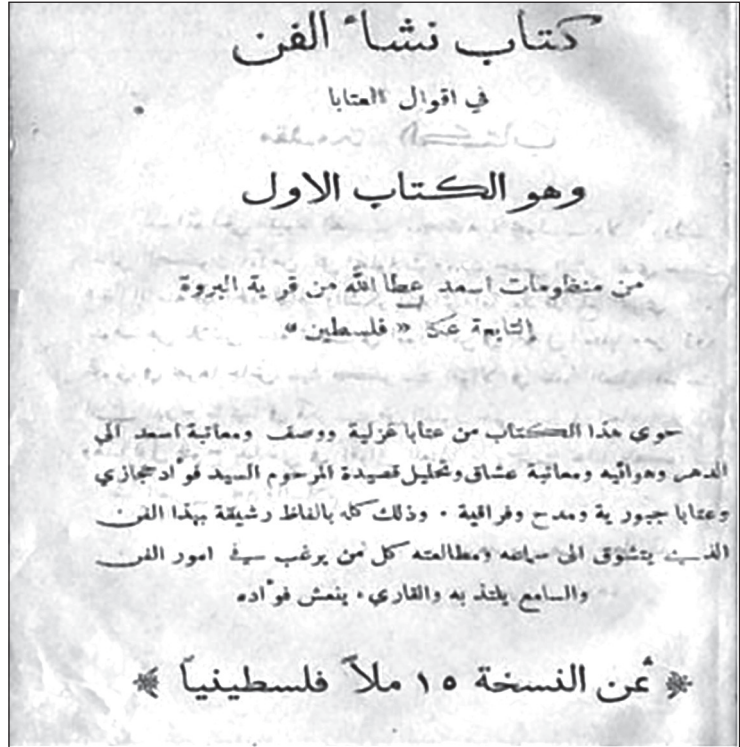 كتاب نشأ الفن
في اقوال العتابا
وهو الكتاب الاول
من منظومات اسعد عطا الله من قرية البروة
التابعة عكا « فلسطين »
حوى هذا الكتاب من عتابا غزلية ووصف ومعاتبة اسعد الى
الدهر وهواتيه ومعاتبة عشاق وتحليل قصيدة المرحوم السيد فواد حجازي
وعتابا جبورية ومدح وفراقية . وذلك كله بالفاظ رشيقة بهذا الفن
الذي يتشوق الى سماعه ومطالعته كل من يرغب في امور الفن
والسامع يلتذ به والقاريء ينعش فوأده
ثمن النسخة ١٥ ملاً فلسطينياً